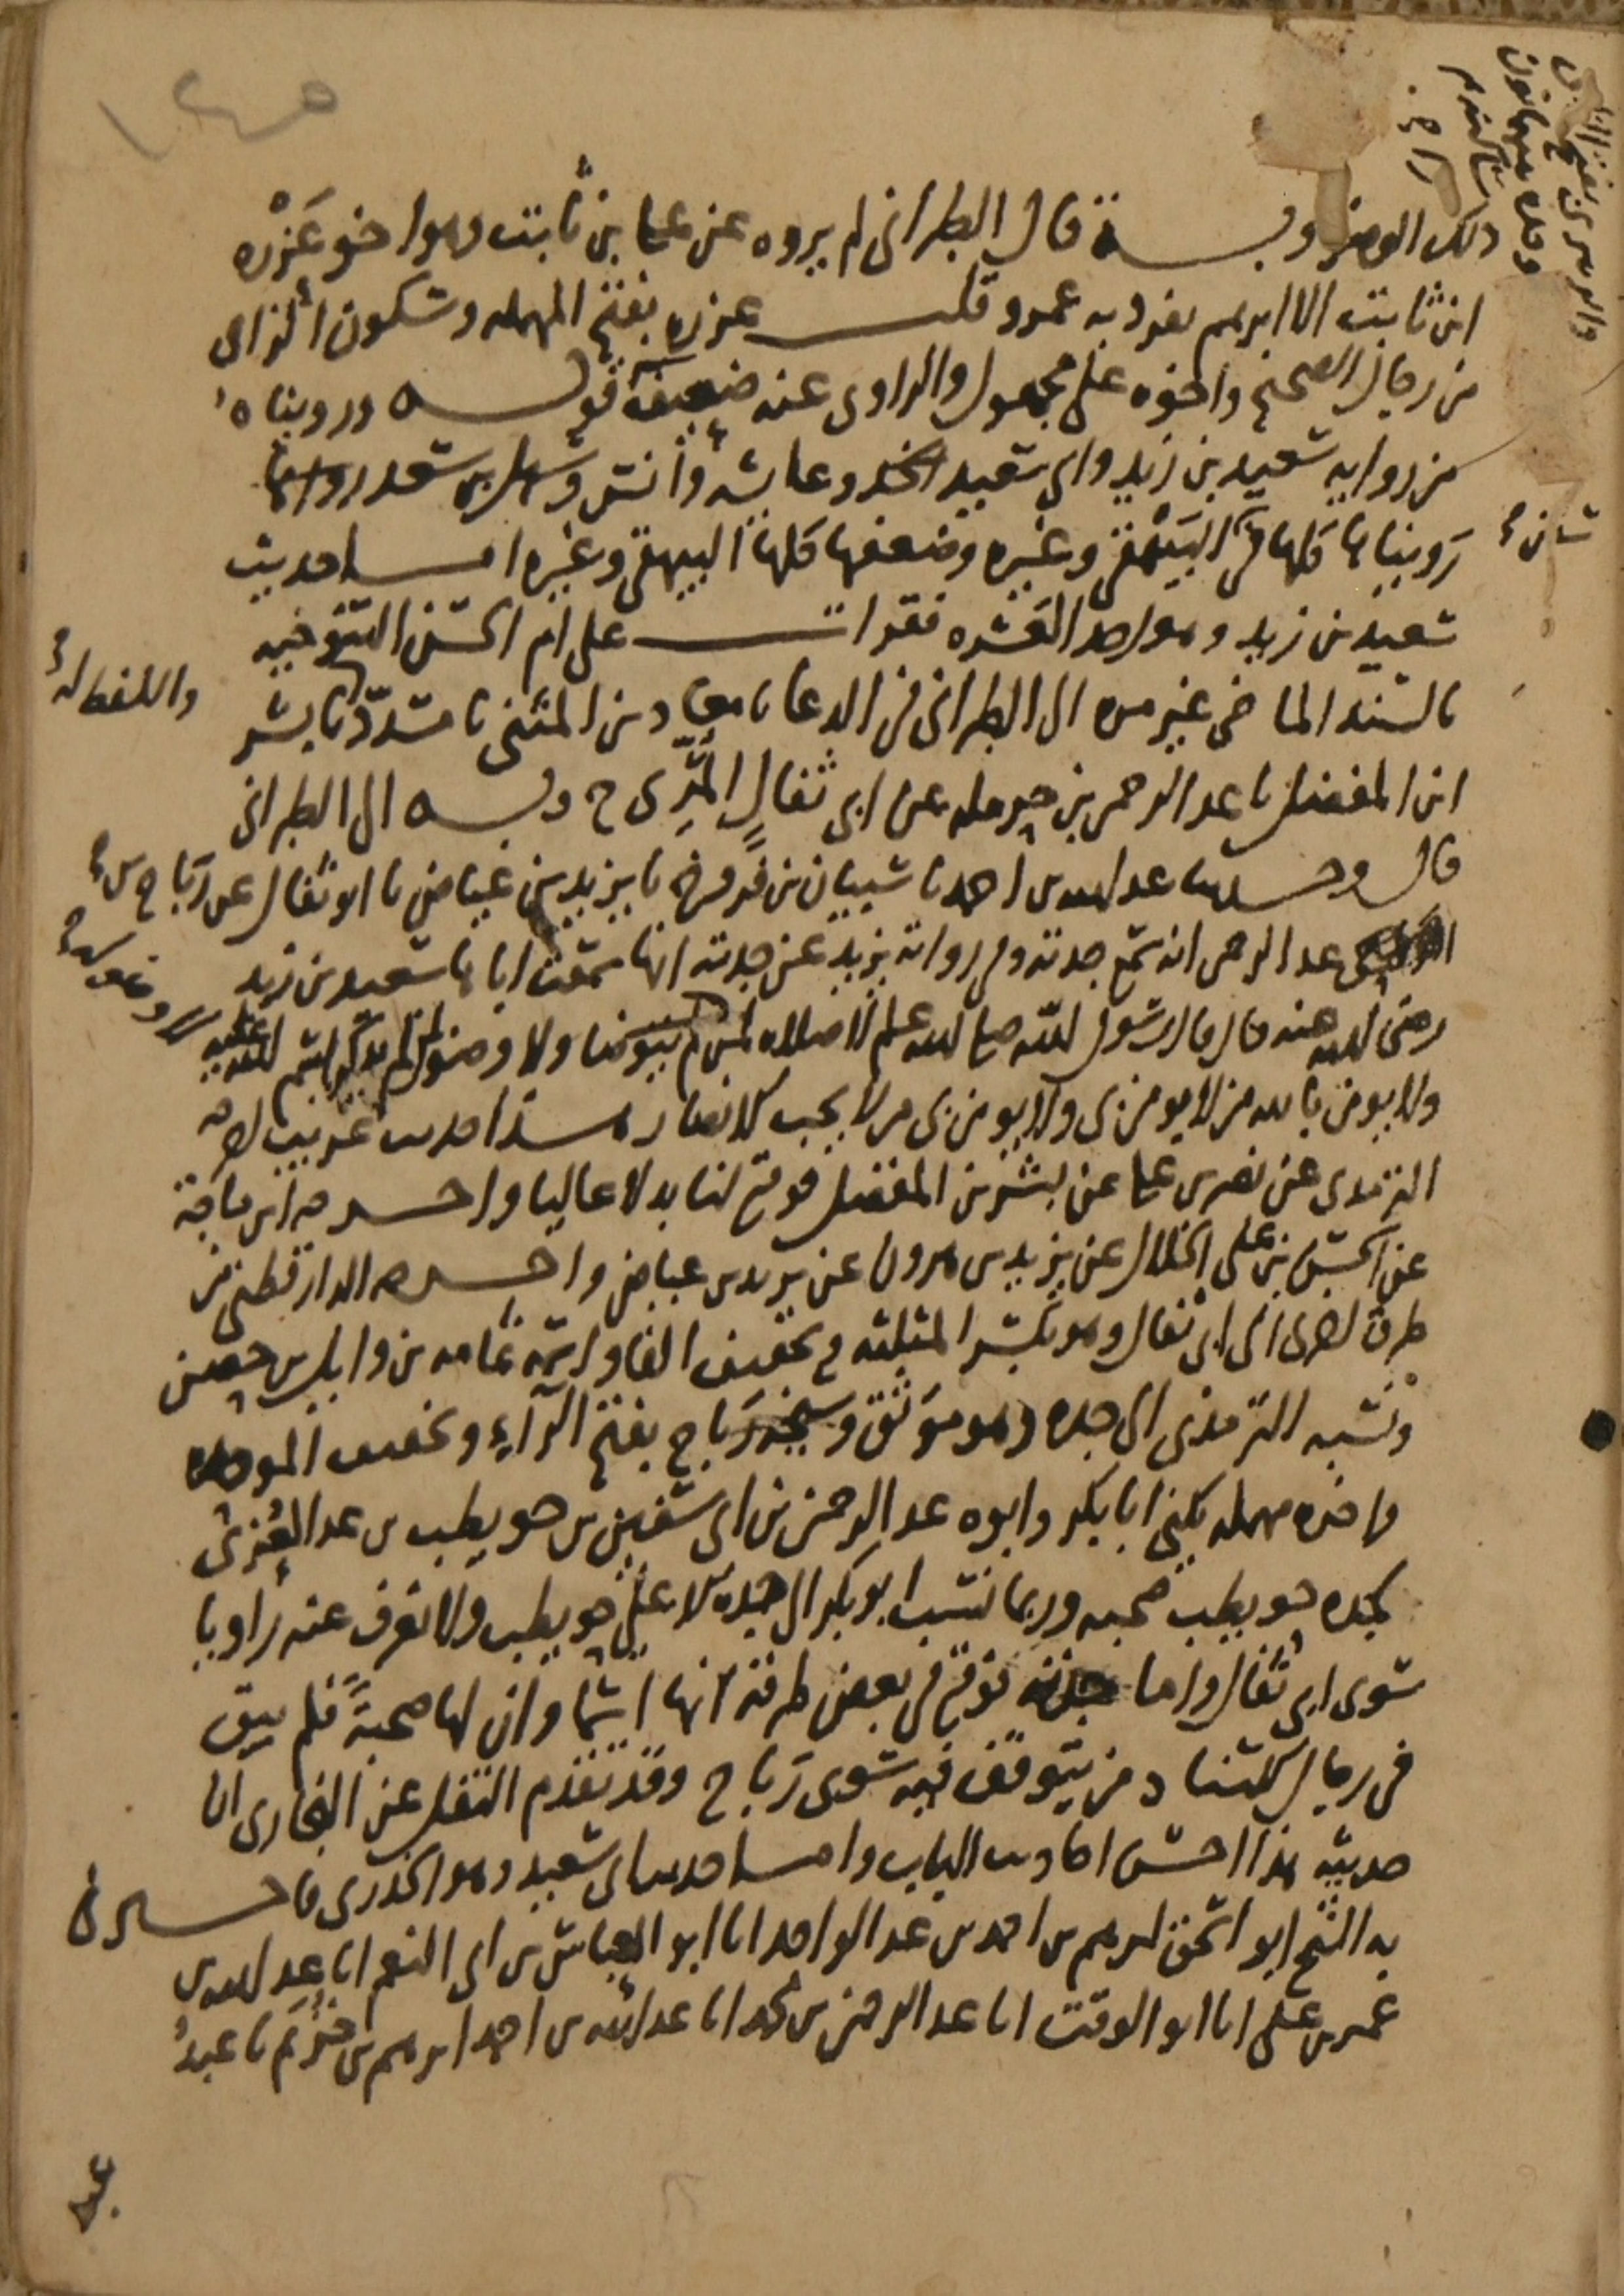 ذلك الوضوء وبه قال الطبراني لم يروه عن علي بن ثابت وهو اخو عَزْره
ابن ثابت الا ابرهيم تفرد به عمرو قلت عزره بفتح المهمله وسكون الزاى
من رجال الصحيح واخوه على مجهول والراوى عنه ضعيف قوله وروينا ه
من روايه سعيد بن زيد وابي سعيد الخدرى وعايشه وانس وسهل بن سعد
رَوينا ها كلها في سنن البَيْهقي وغيره وضعفها كلها البيهقي وغيره اما حديث
سعيد بن زيد وهو احد العشره فقرات على ام الحسن التنوخيه
بالسند الماضى غير مره الى الطبراني في الدعا نا معاذ بن المثنى نا مسدّد نا بشر
ابن المفضل نا عبد الرحمن بن حرمله عن ابي ثفالٍ المُرِّى ح وبه الى الطبراني
قال وحدثنا عبد الله بن احمد نا شيبان بن فروخ نا يزيد بن عياض نا ابو ثفال عن رَباح بن
عبد الرحمن انه سمع جدته وفي روايه يزيد عن جدته انها سمعت اباها سعيد بن زيد
رضي الله عنه قال قال رسول الله صلى الله عليه وسلم لا صلاه لمن لا وضوله ولا وضو لمن لم يذكر اسم الله عليه
ولا يومن بالله من لا يومن بي ولا يومن بي من لا يحب الانصار هذا حديث غريب اخرجه
الترمذى عن نصر بن علي عن بشر بن المفضل فوقع لنا بدلا عاليا واخرجه ابن ماجة
عن الحسن بن على الخلال عن يزيد بن هرون عن يزيد بن عياض واخرجه الدارقطنى من
طرق اخرى الى ابي ثفال وهو بكسر المثلثه وتخفيف الفا واسمه ثمامه بن وايل بن حصين
ونسبه الترمذى الى جده وهو موَثق وشيخه رَباح بفتح الرآءِ وتخفيف الموحده
واخره مهمله يكنى ابا بكر وابوه عبد الرحمن بن ابي سفين بن حويطب بن عبد العُزى
لجده حويطب صحبه وربما نسب ابو بكر الى جده الاعلى حويطب ولا نعرف عنه راويا
سوى ابي ثفال واما جدته فوقع في بعض طرقه انها اسما وان لها صحبةً فلم يبق
في رجال الاسناد من يتوقف فيه سوى رَباح وقد تقدم النقل عن البخارى ان
حديثه هذا احسن احاديث الباب واما حديث ابي سعيد وهو الخدرى فاخبرني
به الشيخ ابو اسحق ابرهيم بن احمد بن عبد الواحد انا ابو العباس بن ابي النعم انا عبد الله بن
عمر بن على انا ابو الوقت انا عبد الرحمن بن محمد انا عبد الله بن احمد ابرهيم بن خزيم نا عبدُ
سنن
واللفظ له
عبد